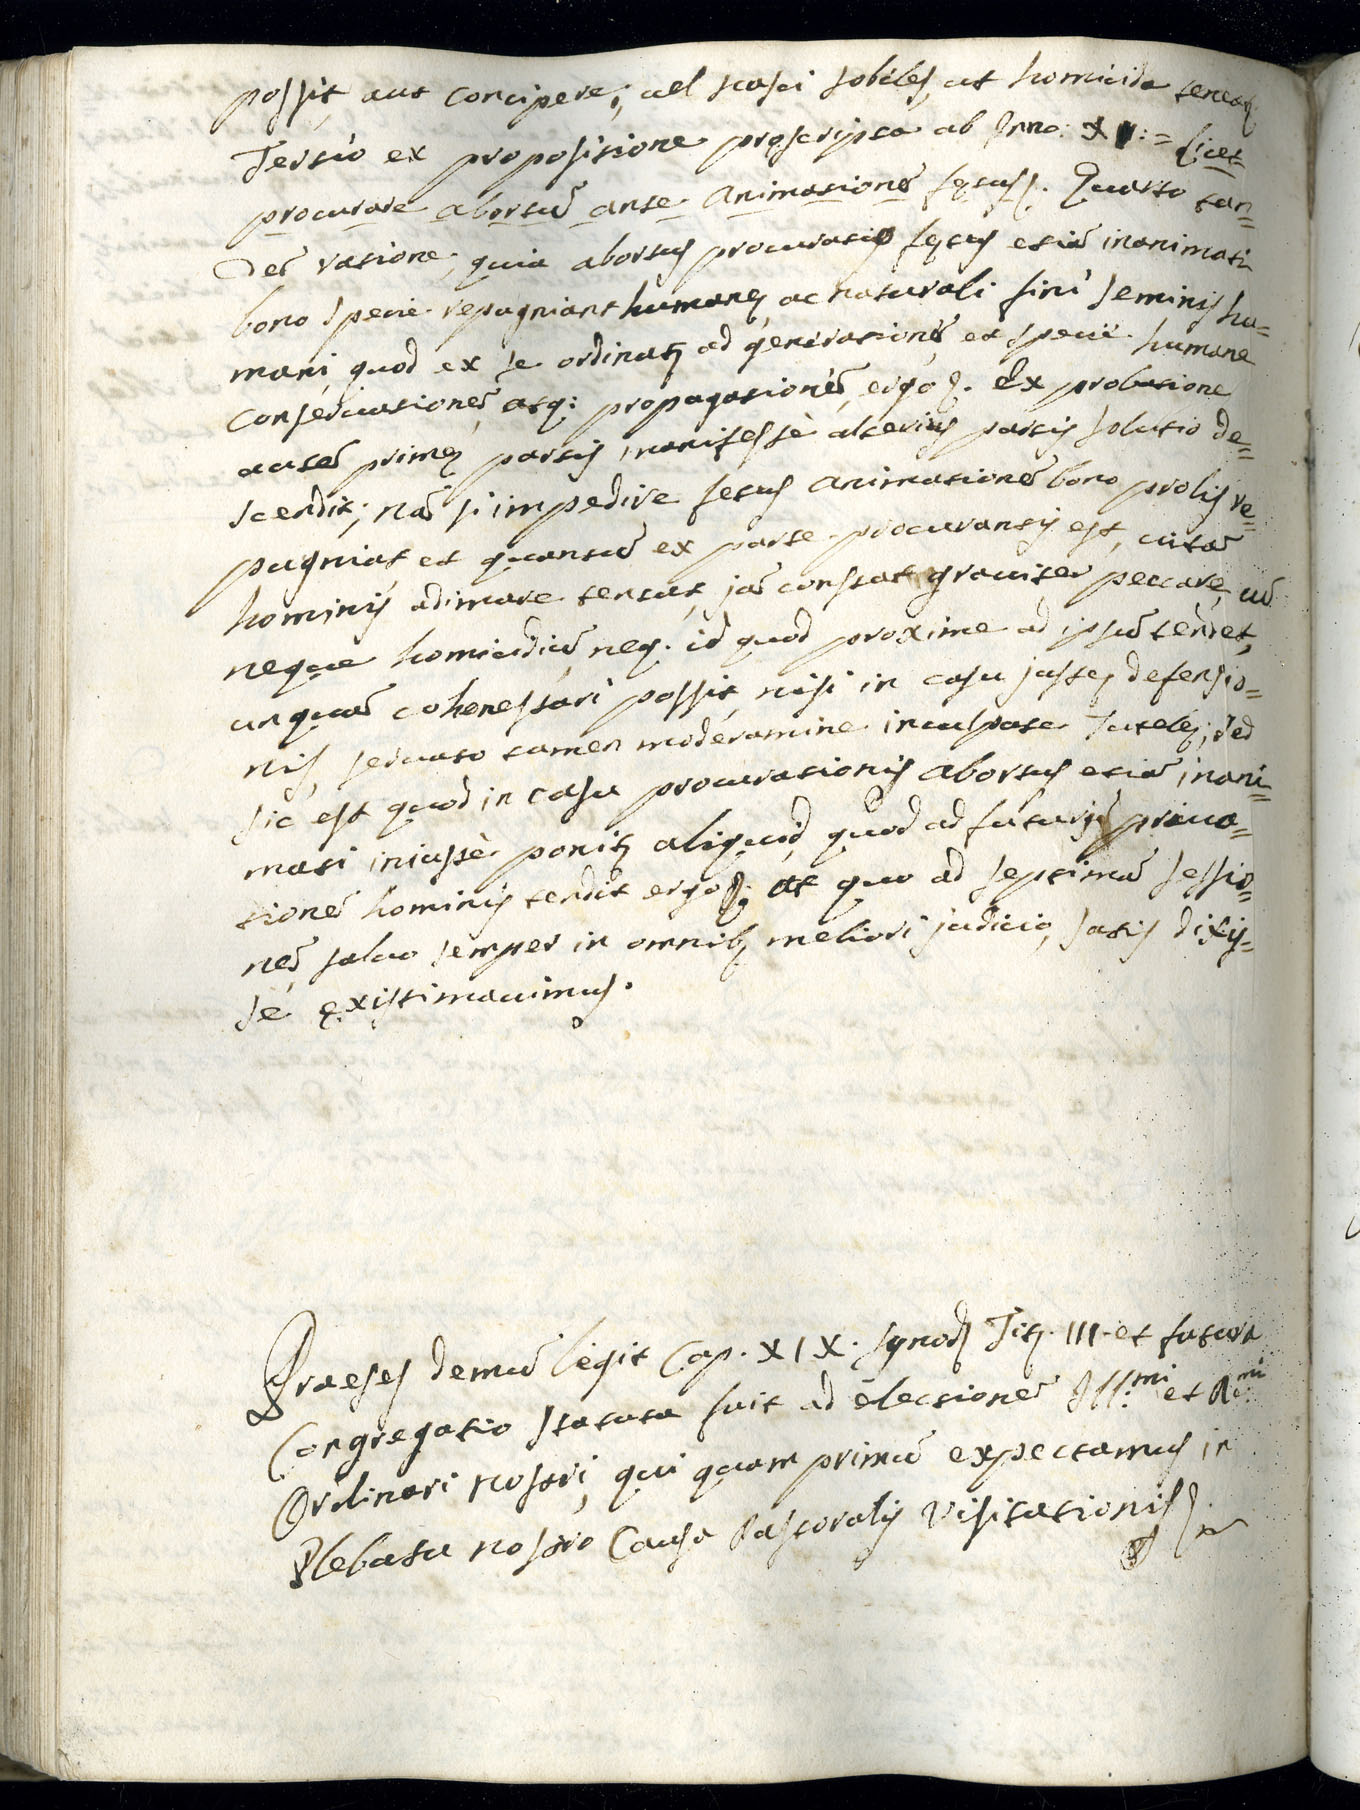 possit, aut concipere; vel nasci soboles, ut homicida teneatꝫ
Tertio ex propositione proscripta ab Inno: XI: = licet
procurare aborsũ ante animationẽ fętus ꝭ. Quarto tan=
dẽ ratione, quia aborsus procuratio fętus etiã inanimati
bono specie repugniant humanę, ac naturali fini seminis hu=
mani, quod ex se ordinatꝫ ad generationẽ, et specie humane
conseruationẽ, atq: propagationẽ, ergo ꝭ. Ex probatione
autẽ primę partis, manifestè alterius partis solutio de=
scendit; nã si impedire fetus animationẽ bono prolis re=
pugniat et quantũ ex parte procurantis est, vitã
hominis adimare tentat, jã constat grauiter peccare, cũ
neque homicidiũ, neq. id quod proxime ad ipsũ tendet,
unquã cohonestari possit, nisi in casu justę defensio=
nis, seruato tamen moderamine inculpate Tutelę; sed
sic est quod in casu procurationis aborsus etiã inani=
mati iniustè ponitꝫ aliquid, quod ad futurã priua=
tionẽ hominis tendit ergo ꝭ; et quo ad septimã sessio=
nẽ, saluo semper in omnibꝫ meliori judicio, satis dixis=
se existimauimus.
Praeses demũ legit Cap. XIX. synodꝫ Titꝫ. III. et futura
Congregatio statuta fuit ad electionẽ Ill.mi et R.mi
Ordinari nostri, qui quam primũ expectamus in
Plebatu nostro Causa Pastoralis Visitationis ꝭ.